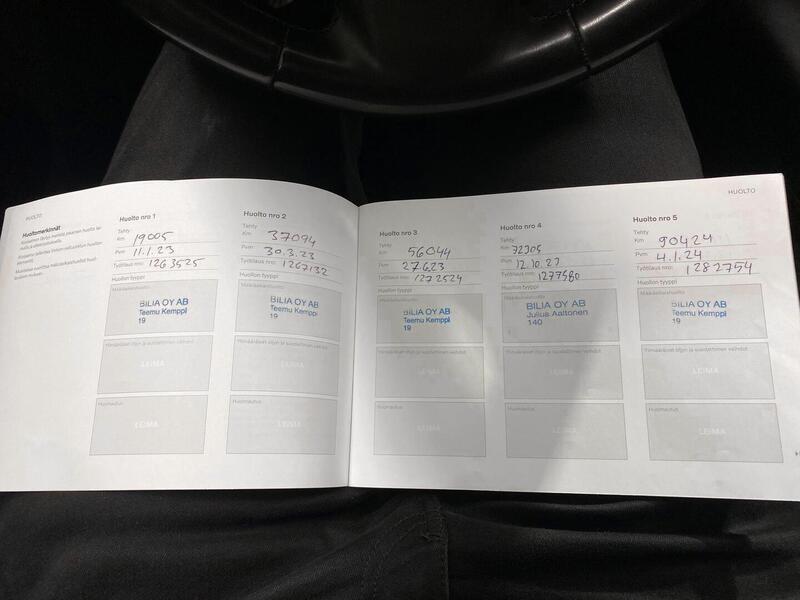 HUOLTO
Huoltomerkinnät
Huolto nro 1
Tehty
Km 19005
Pvm 11.1.23
Työtilaus nro: 1263525
Huollon tyyppi
Määräaikaishuolto
BILIA OY AB
Teemu Kemppi
19
Ylimääräiset öljyn ja suodattimen vaihdot
LEIMA
Huomautus
LEIMA
Huolto nro 2
Tehty
Km 37094
Pvm 30.3.23
Työtilaus nro: 1267132
Huollon tyyppi
Määräaikaishuolto
BILIA OY AB
Teemu Kemppi
19
Ylimääräiset öljyn ja suodattimen vaihdot
LEIMA
Huomautus
LEIMA
HUOLTO
Huolto nro 3
Tehty
Km 56044
Pvm 27.6.23
Työtilaus nro: 1272524
Huollon tyyppi
Määräaikaishuolto
BILIA OY AB
Teemu Kemppi
19
Ylimääräiset öljyn ja suodattimen vaihdot
LEIMA
Huomautus
LEIMA
Huolto nro 4
Tehty
Km 72305
Pvm 12.10.23
Työtilaus nro: 1277580
Huollon tyyppi
Määräaikaishuolto
BILIA OY AB
Julius Aaltonen
140
Ylimääräiset öljyn ja suodattimen vaihdot
LEIMA
Huomautus
LEIMA
Huolto nro 5
Tehty
Km 90424
Pvm 4.1.24
Työtilaus nro: 1282754
Huollon tyyppi
Määräaikaishuolto
BILIA OY AB
Teemu Kemppi
19
Ylimääräiset öljyn ja suodattimen vaihdot
LEIMA
Huomautus
LEIMA